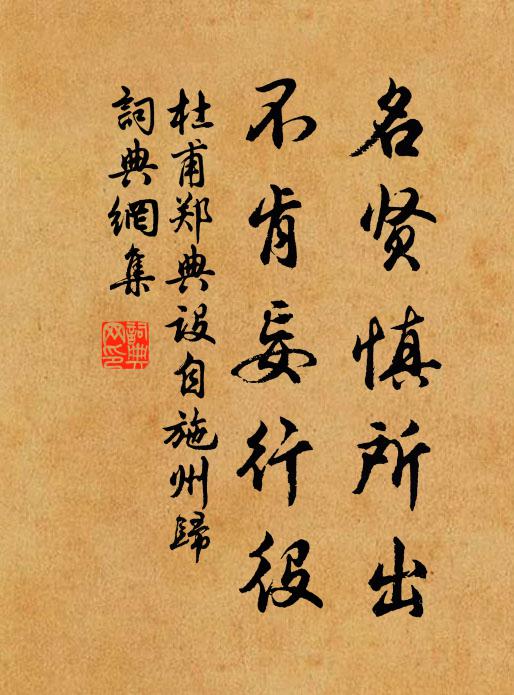 名贤慎所出
不肯妄行役
杜甫郑典设自施州歸
詞典網集
詞典網印